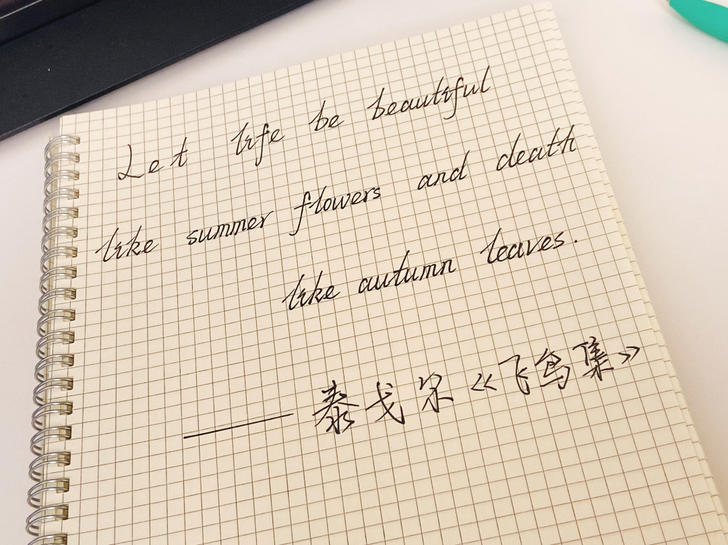 Let life be beautiful
like summer flowers and death
like autumn leaves.
—— 泰戈尔《飞鸟集》